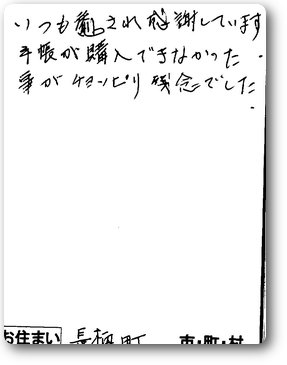 いつも癒され感謝しています
手帳が購入できなかった.
事がチョッピリ残念でした.
お住まい 長柄町 市・町・村